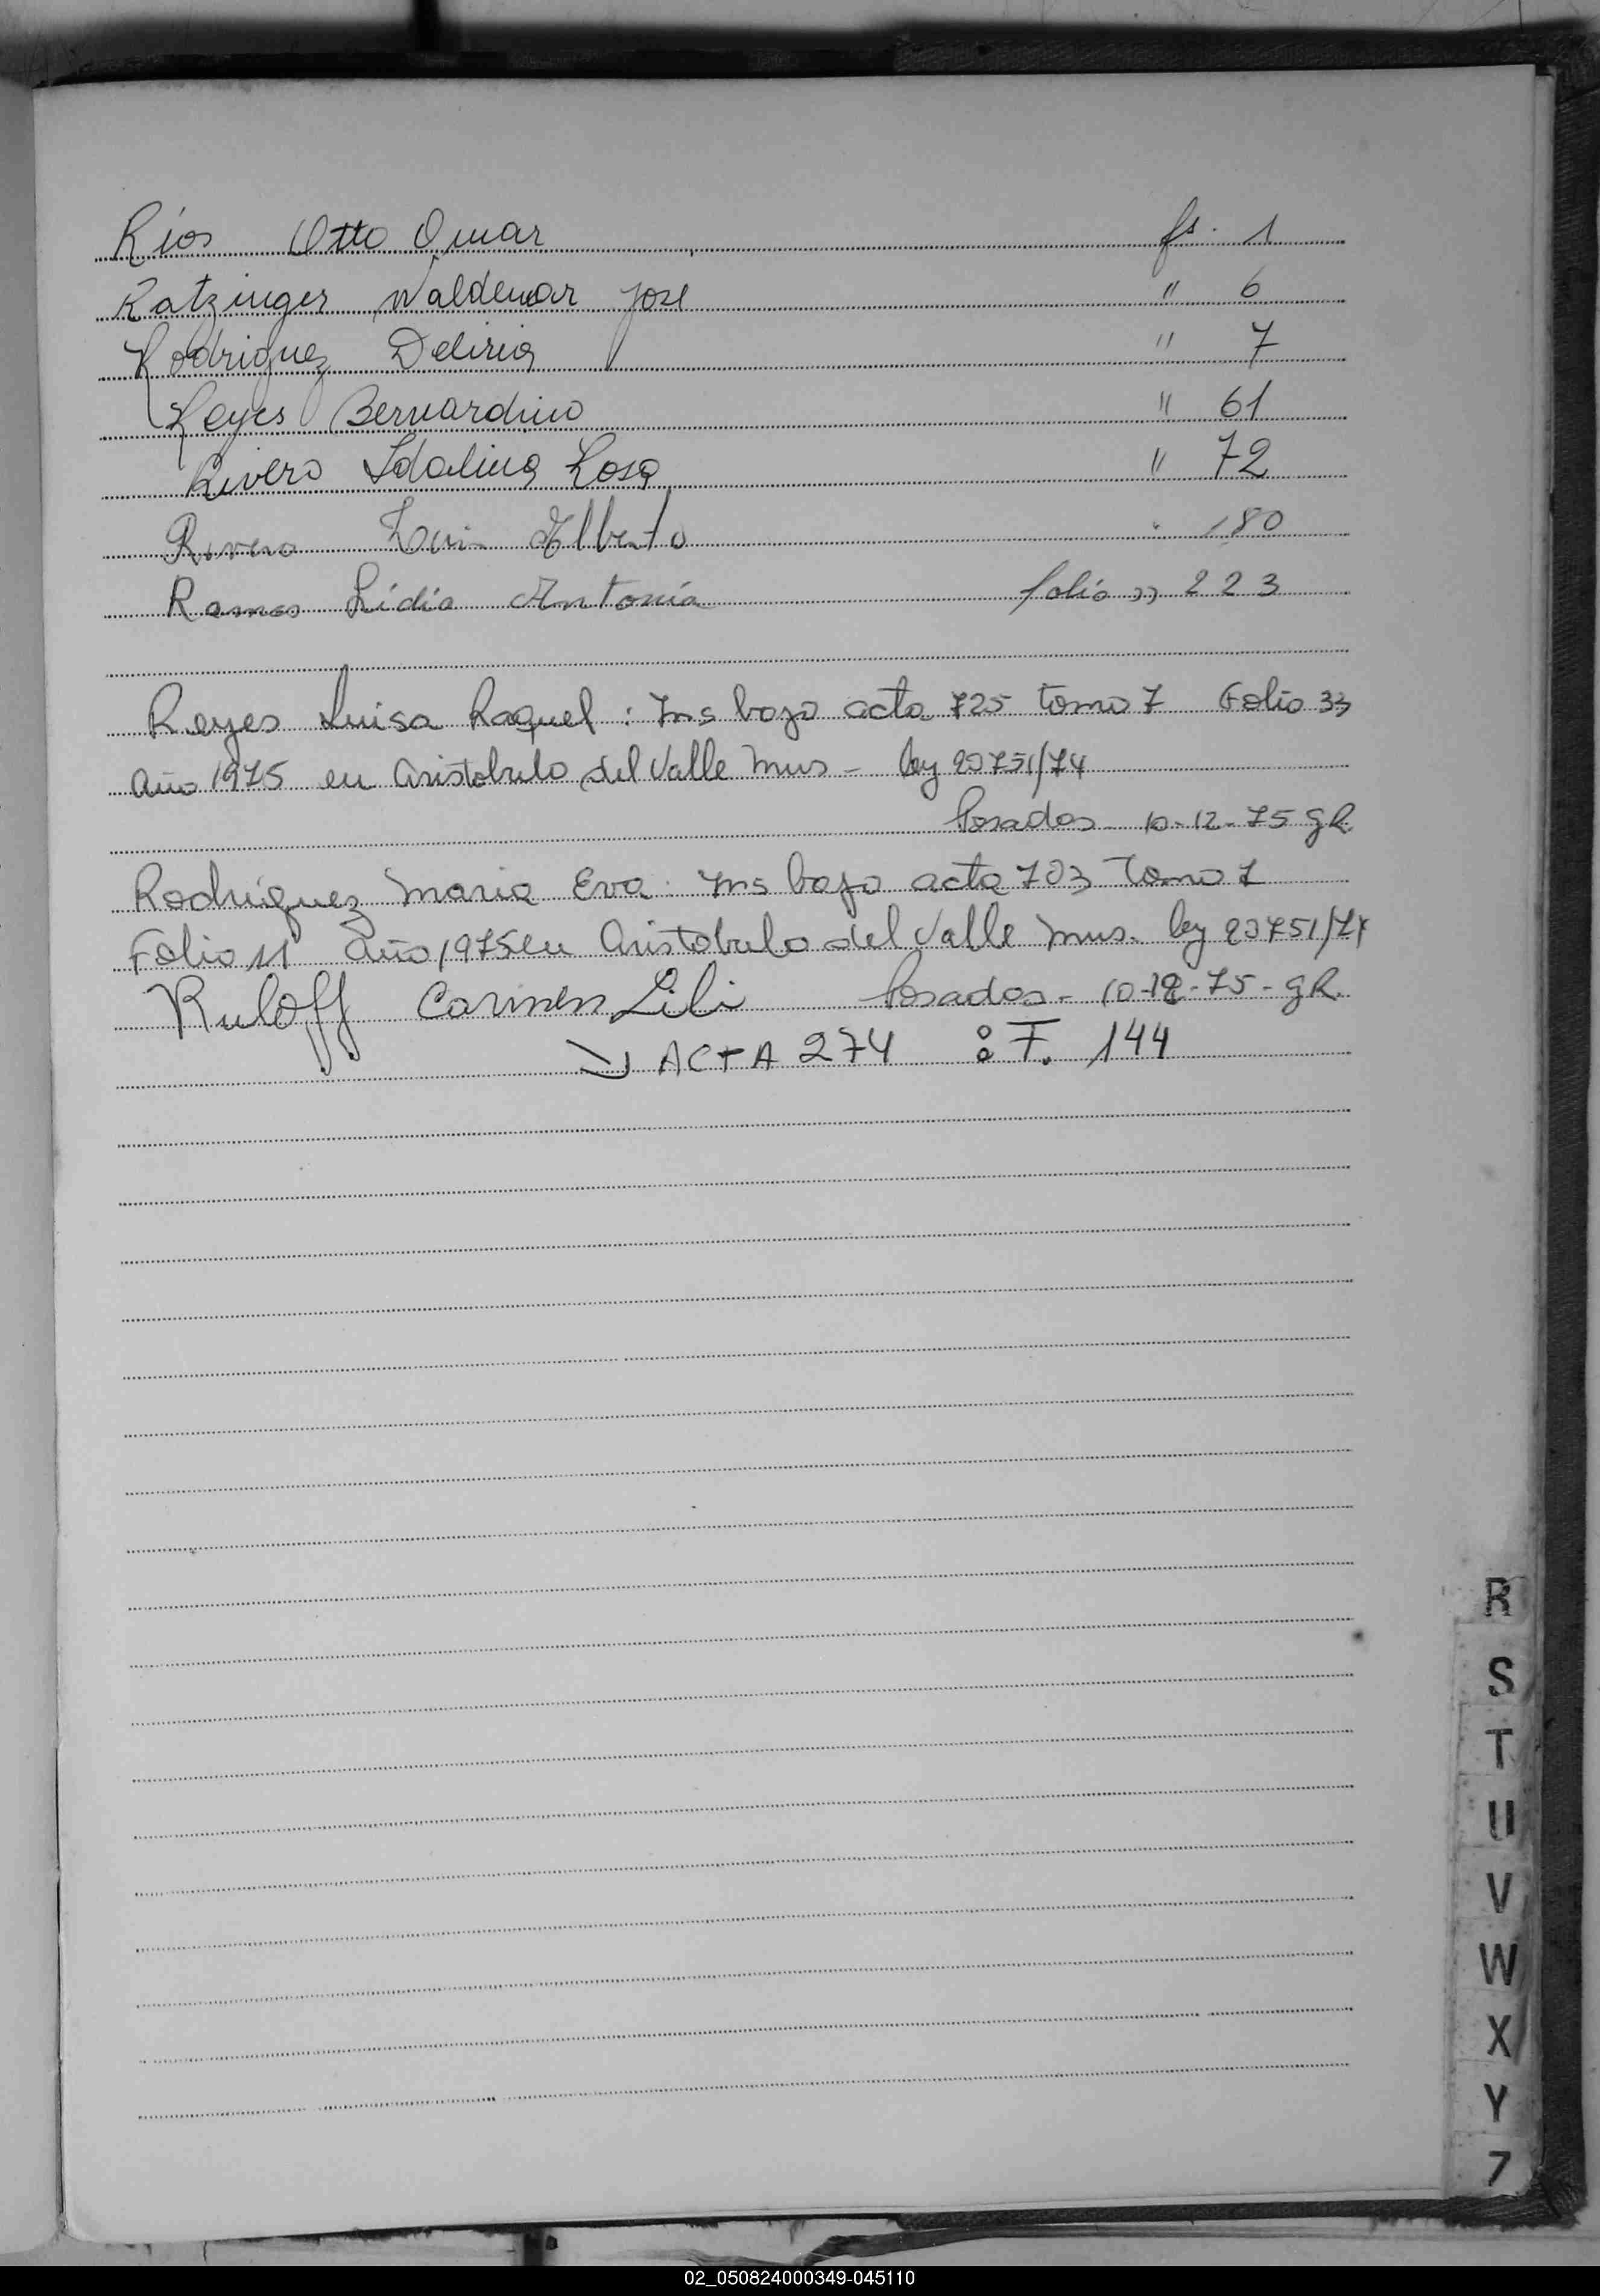 Ríos Otto Omar fs. 1
Ratzinger Waldemar José " 6
Rodriguez Deliria " 7
Reyes Bernardino " 61
Rivero Idalina Rosa " 72
Rivero Luis Alberto " 180
Ramos Lidia Antonia folio " 223
Reyes Luisa Raquel : Ins bajo acta 725 tomo 7 Folio 33
Año 1975 en Aristobulo del Valle Mnes - ley 20751/74
Posadas - 10-12-75 GR.
Rodriguez Maria Eva. Ins bajo acta 703 Tomo 7
Folio 11 Año 1975 en Aristobulo del Valle Mnes. ley 20751/74
Ruloff Carmen Lili Posadas - 10-12-75 - GR.
ACTA 274 : F. 144
R
S
T
U
V
W
X
Y
Z
02_050824000349-045110